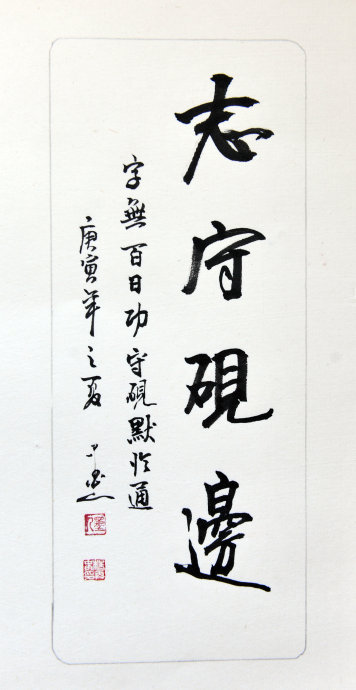 志守硯邊
字無百日功守硯默
通
庚寅年之夏